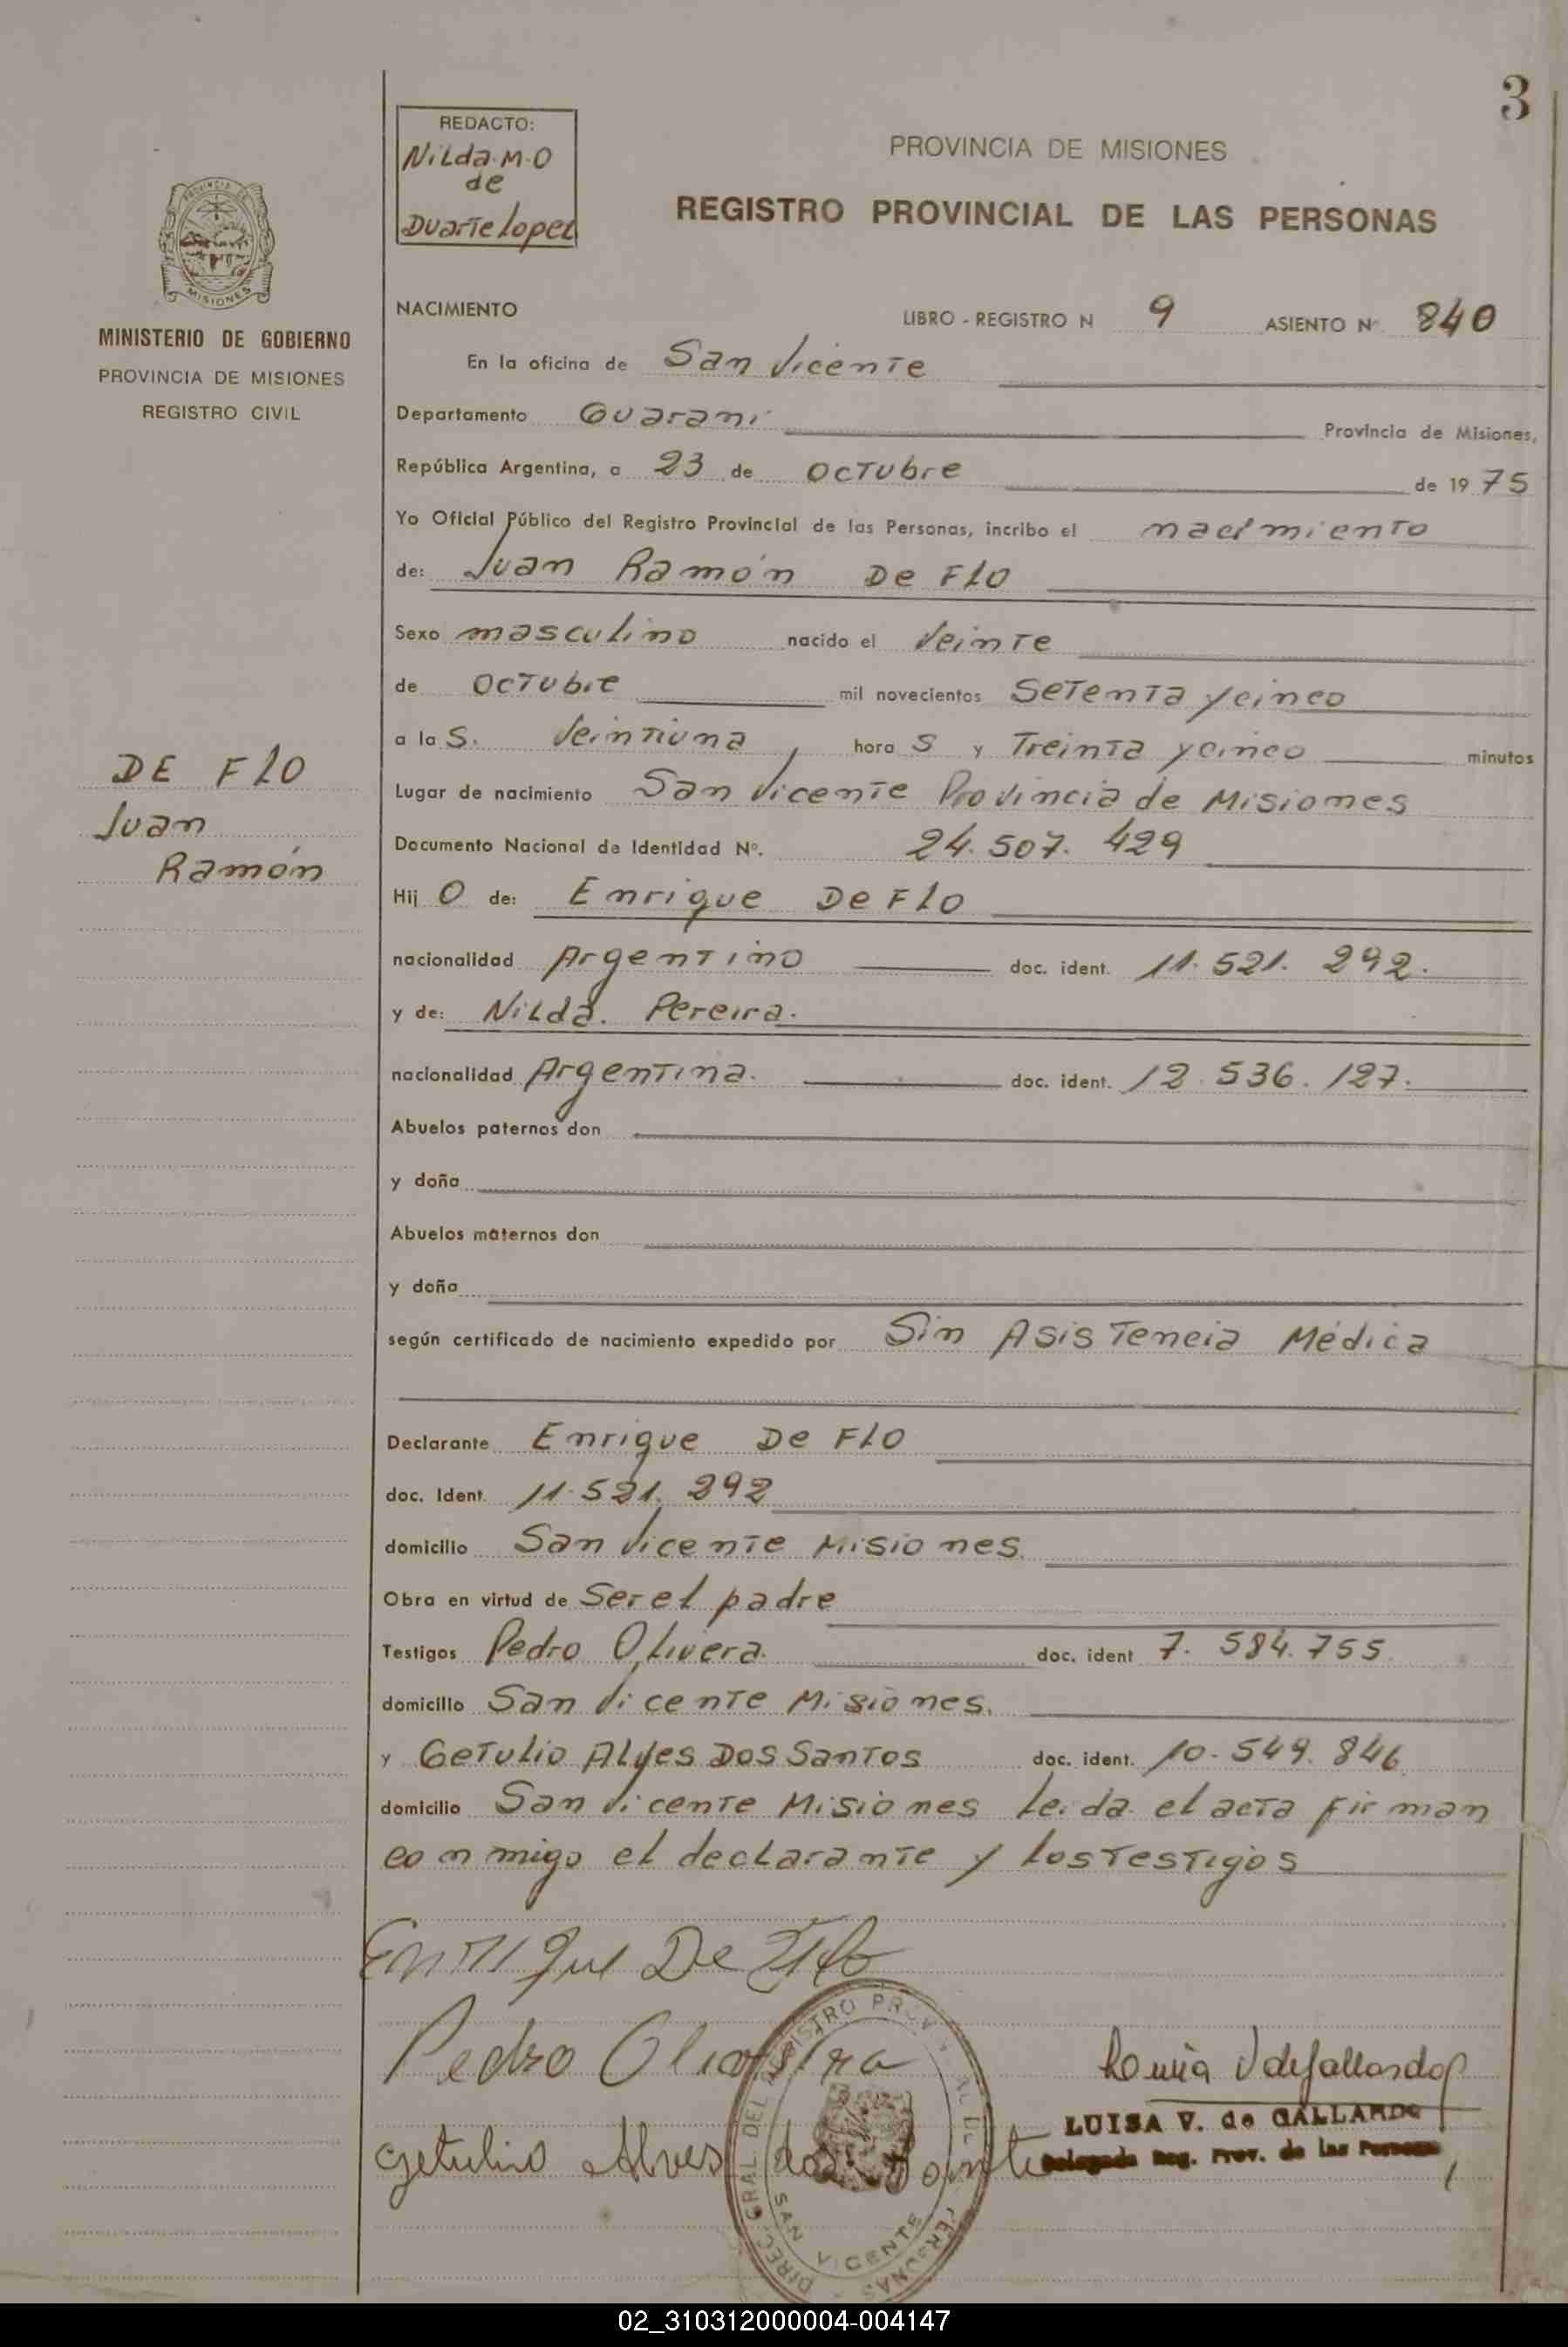 3
REDACTO:
Nilda M.O
de
Duarte Lopez
PROVINCIA DE MISIONES
REGISTRO PROVINCIAL DE LAS PERSONAS
MISIONES
MINISTERIO DE GOBIERNO
PROVINCIA DE MISIONES
REGISTRO CIVIL
DE FLO
Juan
Ramón
NACIMIENTO LIBRO - REGISTRO N 9 ASIENTO Nº 840
En la oficina de San Vicente
Departamento Guaraní Provincia de Misiones,
República Argentina, a 23 de Octubre de 1975
Yo Oficial Público del Registro Provincial de las Personas, incribo el nacimiento
de: Juan Ramón De Flo
Sexo masculino nacido el Veinte
de Octubre mil novecientos Setenta y cinco
a la S. Veintiuna, hora S y Treinta y cinco minutos
Lugar de nacimiento San Vicente Provincia de Misiones
Documento Nacional de Identidad Nº. 24.507.429
Hij O de: Enrique De Flo
nacionalidad Argentino doc. ident. 11.521.292.
y de: Nilda. Pereira.
nacionalidad Argentina. doc. ident. 12.536.127.
Abuelos paternos don
y doña
Abuelos maternos don
y doña
según certificado de nacimiento expedido por Sin Asistencia Médica
Declarante Enrique De Flo
doc. Ident. 11.521.292
domicilio San Vicente Misiones.
Obra en virtud de Ser el padre
Testigos Pedro Olivera. doc. ident 7.584.755.
domicilio San Vicente Misiones.
y Getulio Alves Dos Santos doc. ident. 10.549.846
domicilio San Vicente Misiones Leída el acta firman
conmigo el declarante y los testigos
Enrique De Flo
Pedro Olivera
Getulio Alves dos Santo
DIREC. GRAL. DEL REGISTRO PROV. PERSONAS
SAN VICENTE
LUISA V. de GALLARDO
Delegada Reg. Prov. de las Personas
02_310312000004-004147